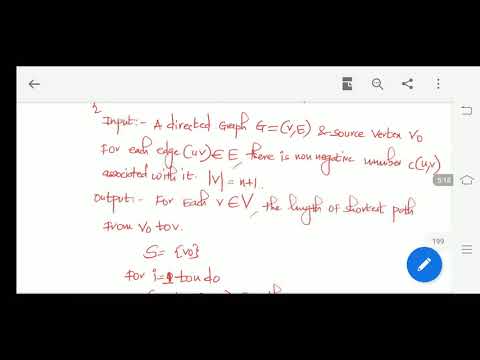 Input:- A directed Graph G=(V,E) & source vertex V0
For each edge (u,v) ∈ E, there is non negative number c(u,v)
associated with it. |V| = n+1.
Output:- For Each v ∈ V, the length of shortest path
From V0 to v.
S= {V0}
For i=1 to n do
5:18
199